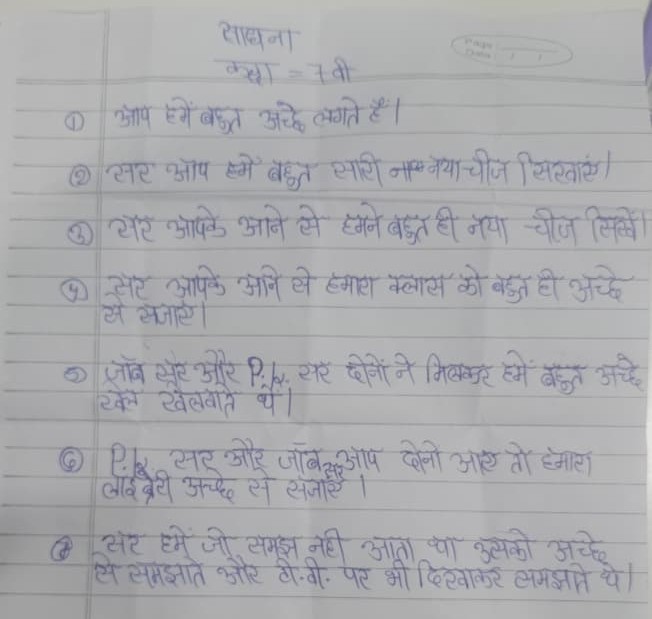 साधना
कक्षा = 7 वी
① आप हमें बहुत अच्छे लगते हैं।
② सर आप हमें बहुत सारी नया चीज सिखाएं।
③ सर आपके आने से हमने बहुत ही नया चीज सिखें।
④ सर आपके आने से हमारा क्लास को बहुत ही अच्छे
से सजाएं।
⑤ जॉब सर और P.k. सर दोनों ने मिलकर हमें बहुत अच्छे
खेल खेलवाते थे।
⑥ P.k सर और जॉब सर आप दोनो आए तो हमारा
लाइब्रेरी अच्छे से सजाएं।
⑦ सर हमें जो समझ नही आता था उसको अच्छे
से समझाते और टी.वी. पर भी दिखाकर समझाते थे।